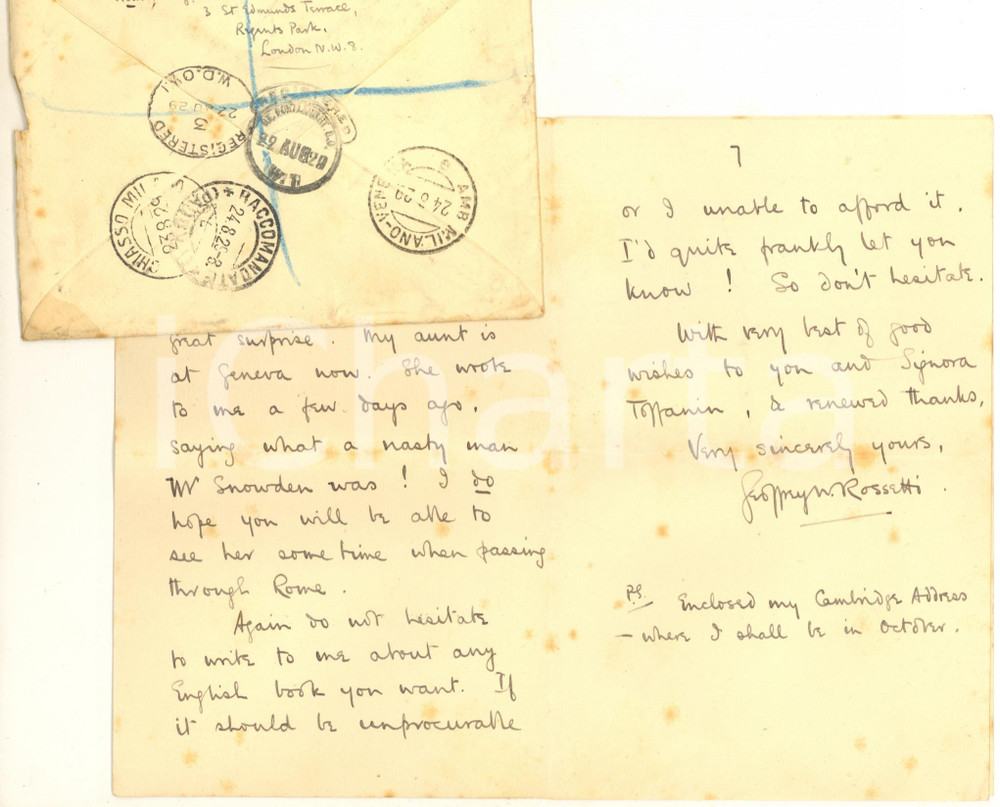 3 St Edmunds Terrace,
Regents Park,
London N.W.8.
REGISTERED
W.D.O.
22 AU 29
3
REGISTERED
22 AUG 29
CHIASSO
RACCOMANDATE
24.8.29-8
AMB. MILANO-VENE
24 8 29
great surprise. My aunt is
at Geneva now. She wrote
to me a few days ago,
saying what a nasty man
Mr Snowden was! I do
hope you will be able to
see her some time when passing
through Rome.
Again do not hesitate
to write to me about any
English book you want. If
it should be unprocurable
7
or I unable to afford it.
I'd quite frankly let you
know! So don't hesitate.
With very best of good
wishes to you and Signora
Toffanin, & renewed thanks,
Very sincerely yours,
Geoffrey W. Rossetti.
P.S. Enclosed my Cambridge Address
- where I shall be in October.
iCharta